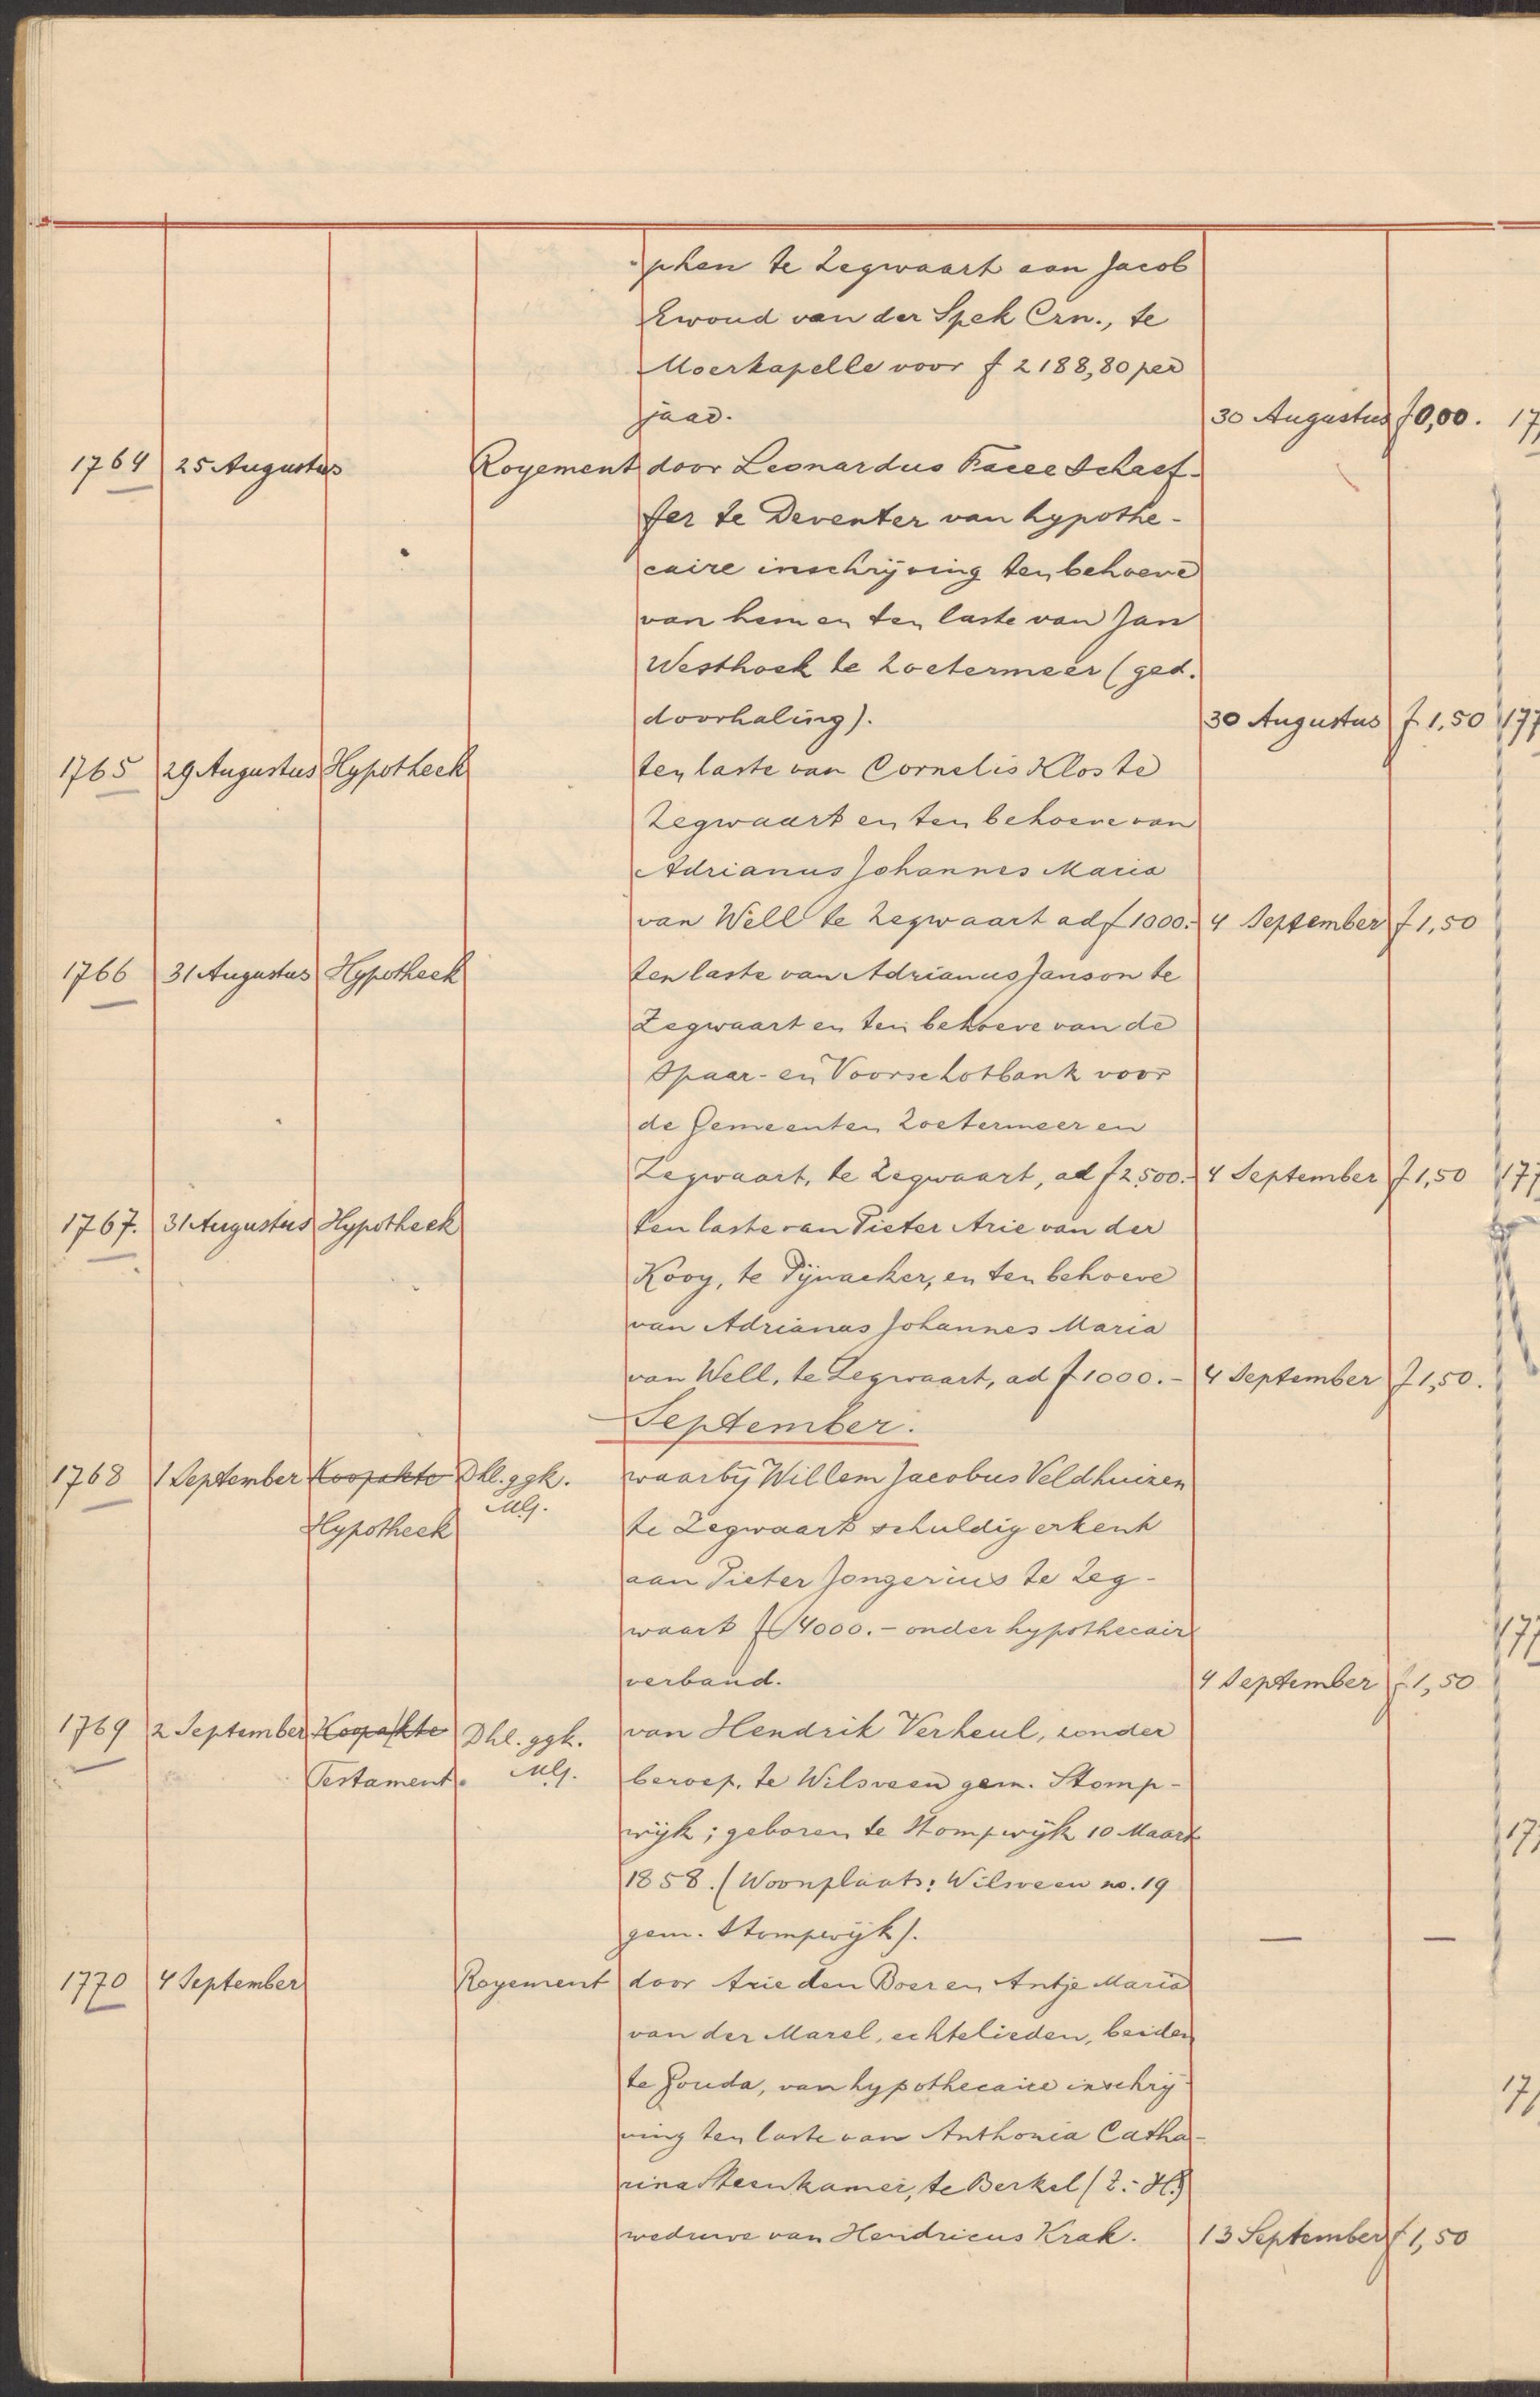 "phen te Zegwaart aan Jacob
Ewoud van der Spek Crn., te
Moerkapelle voor f 2188,80 per
jaar. 30 Augustus f 0,00.
1764 25 Augustus Royement door Leonardus Schaef-
fer te Deventer van hypothe-
caire inschrijving ten behoeve
van hem en ten laste van Jan
Westhoek te Zoetermeer (ged.
doorhaling). 30 Augustus f 1,50
1765 29 Augustus Hypotheek ten laste van Cornelis Klos te
Zegwaart en ten behoeve van
Adrianus Johannes Maria
van Well te Zegwaart ad f 1000.- 4 September f 1,50
1766 31 Augustus Hypotheek ten laste van Adrianus Janson te
Zegwaart en ten behoeve van de
Spaar- en Voorschotbank voor
de Gemeenten Zoetermeer en
Zegwaart, te Zegwaart, ad f 2500.- 4 September f 1,50
1767. 31 Augustus Hypotheek ten laste van Pieter Arie van der
Kooy, te Pijnacker, en ten behoeve
van Adrianus Johannes Maria
van Well, te Zegwaart, ad f 1000.- 4 September f 1,50.
September.
1768 1 September Koopakte Dhl. ggk. waarbij Willem Jacobus Veldhuizen
Hypotheek te Zegwaart schuldig erkent
aan Pieter Jongerius te Zeg-
waart f 4000.- onder hypothecair
verband. 4 September f 1,50
1769 2 September Koopakte Dhl. ggk. van Hendrik Verheul, zonder
Testament. beroep, te Wilsveen gem. Stomp-
wijk; geboren te Stompwijk 10 Maart
1858. (Woonplaats: Wilsveen no. 19
gem. Stompwijk). — —
1770 4 September Royement door Arie den Boer en Antje Maria
van der Marel, echtelieden, beiden
te Gouda, van hypothecaire inschrij-
ving ten laste van Anthonia Catha-
rina Steenkamer, te Berkel (Z.-H.)
weduwe van Hendricus Krak. 13 September f 1,50